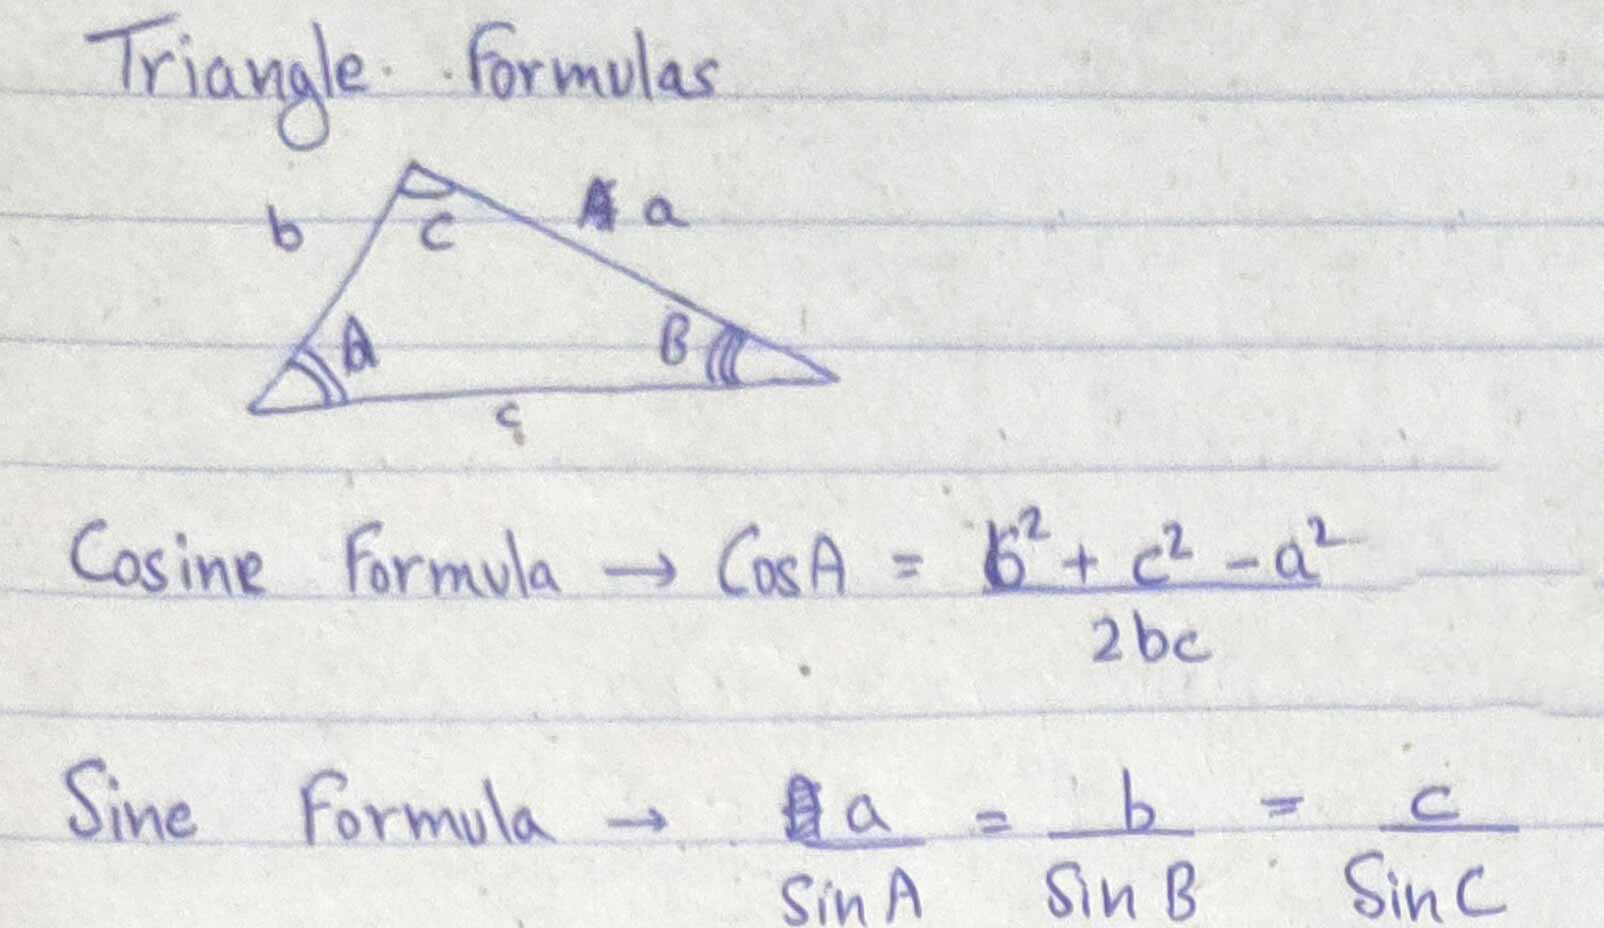 Triangle Formulas
b
C
a
A
B
c
Cosine Formula → CosA = b² + c² - a² / 2bc
Sine Formula → a / Sin A = b / Sin B = c / Sin C